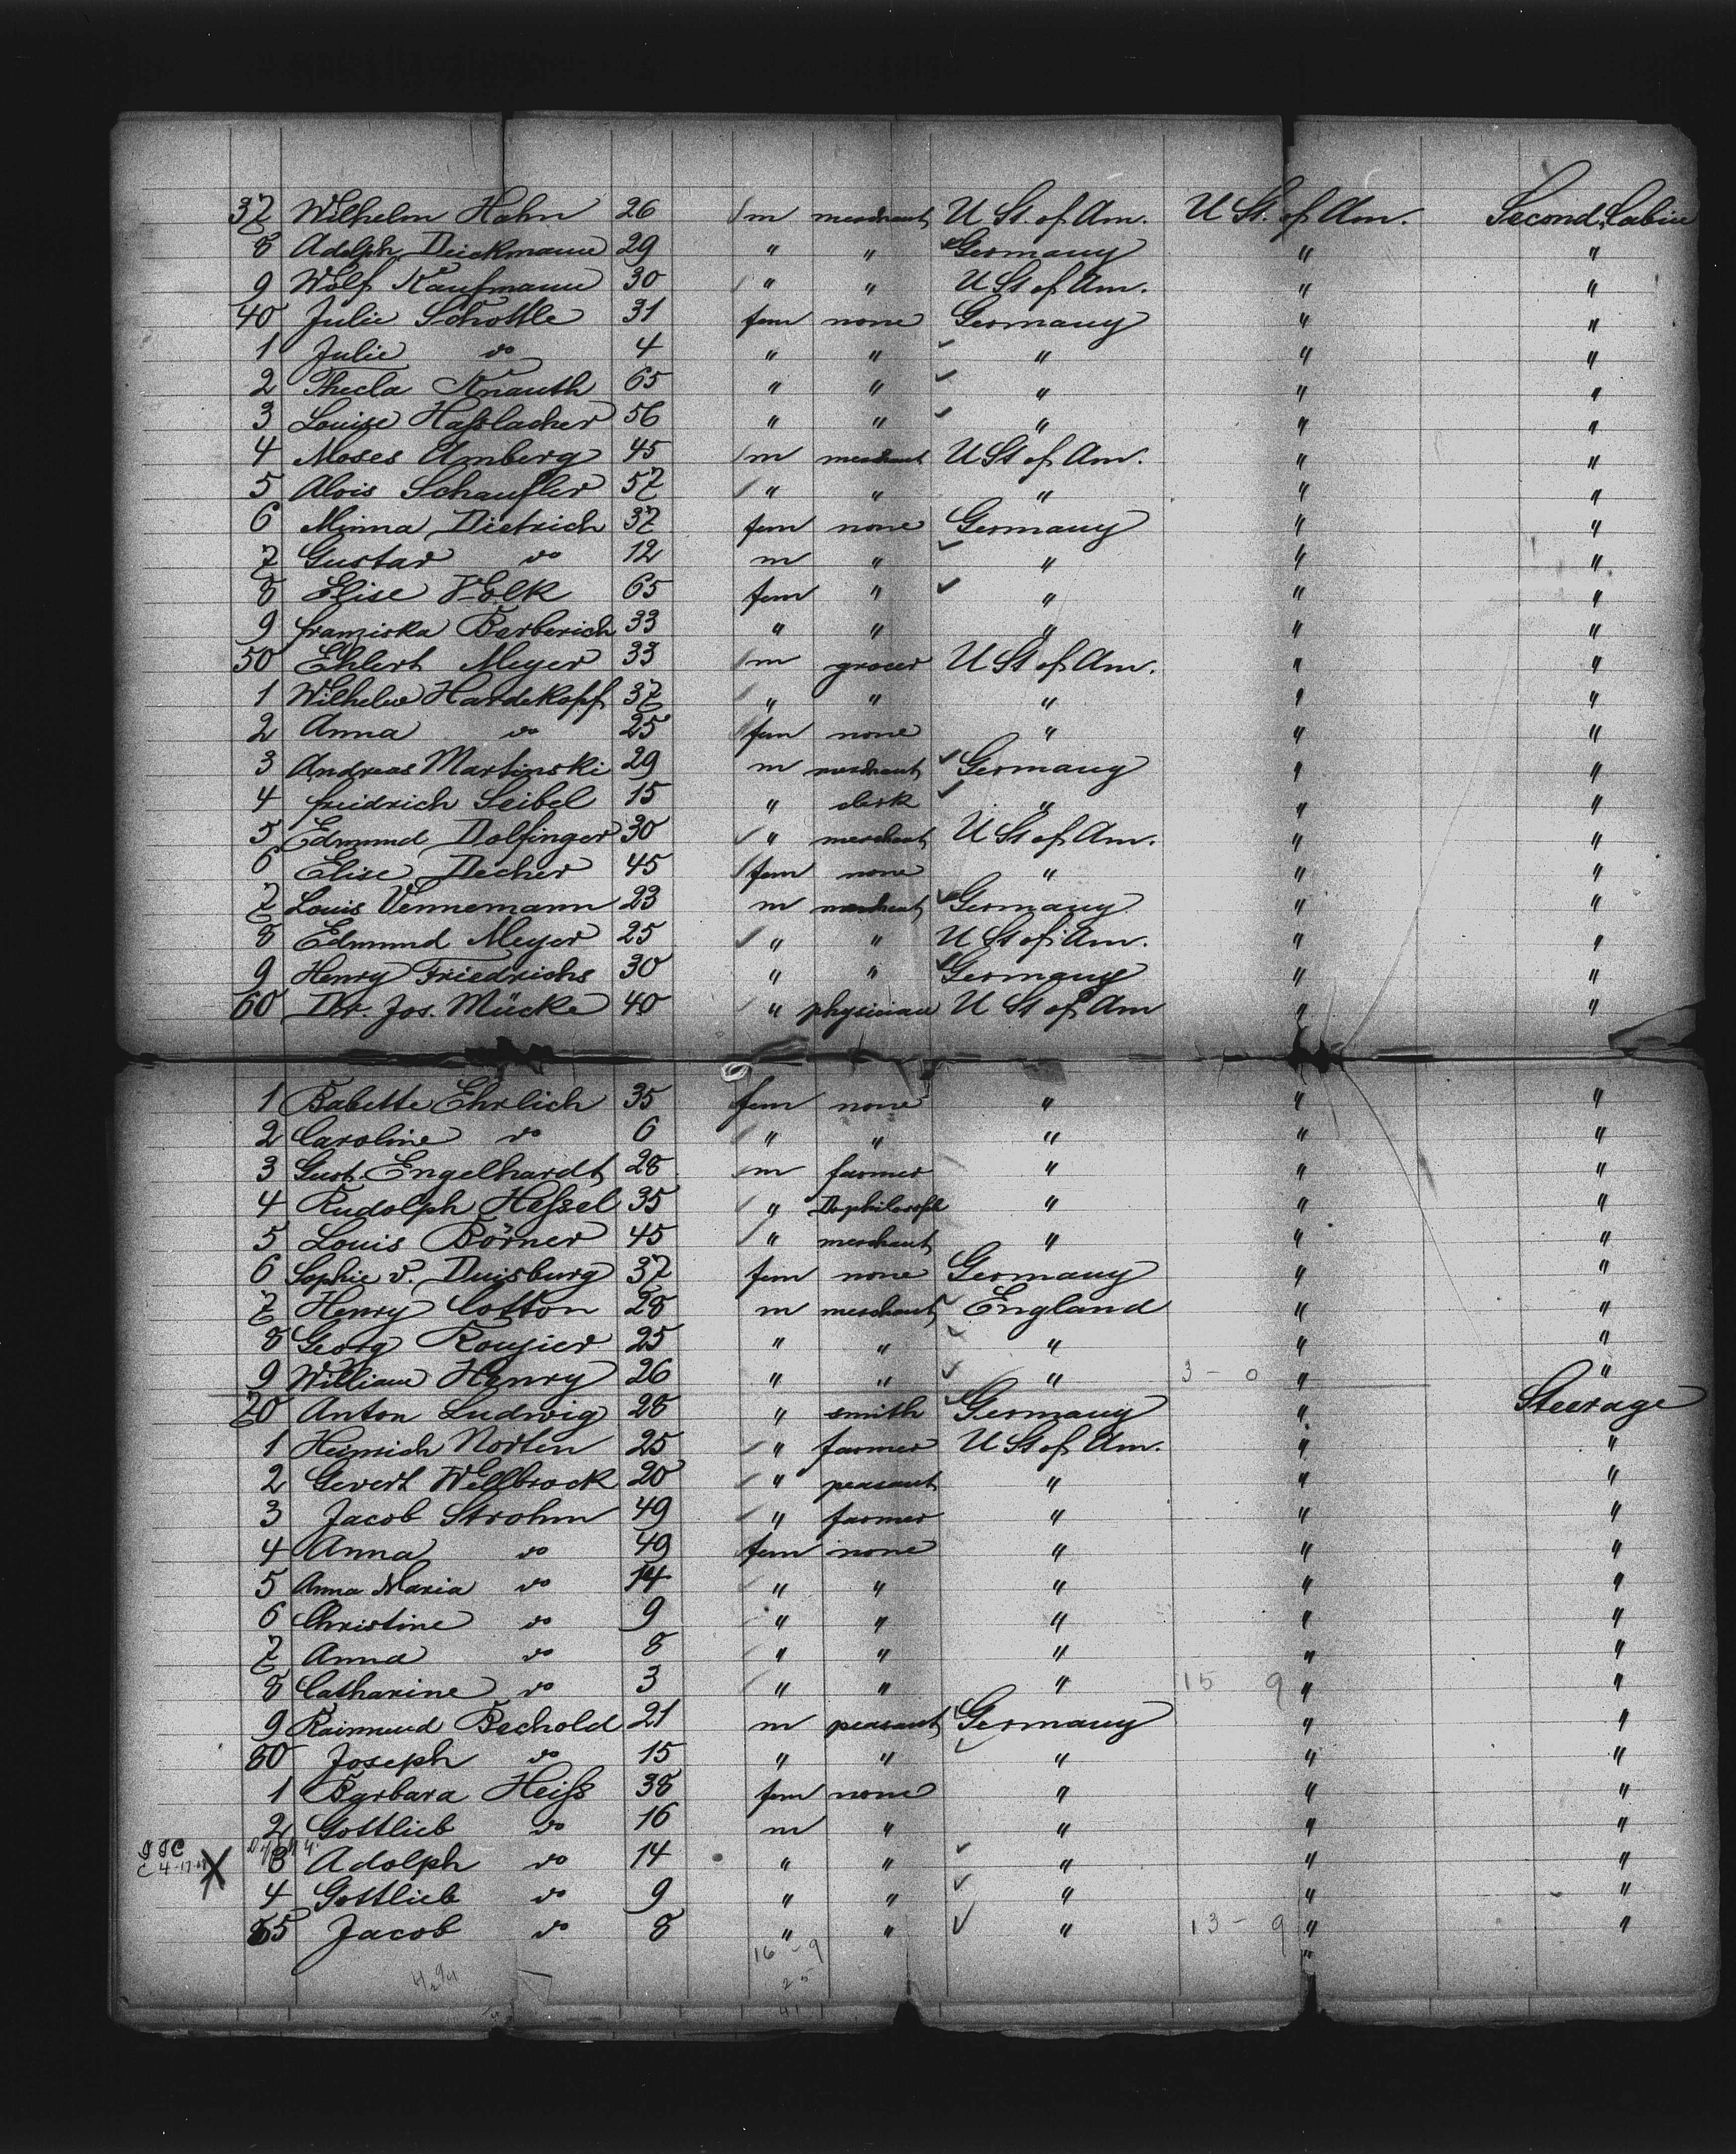 37 Wilhelm Hahn 26 m merchant U St. of Am. U St. of Am. Second Cabin
8 Adolph Dieckmann 29 " " Germany " "
9 Wolf Kaufmann 30 " " U St of Am. " "
40 Julie Schottle 31 fem none Germany " "
1 Julie do 4 " " " " "
2 Thecla Knauth 65 " " " " "
3 Louise Haßlacher 56 " " " " "
4 Moses Amberg 45 m merchant U St of Am. " "
5 Alois Schaufler 57 " " " " "
6 Minna Dietrich 37 fem none Germany " "
7 Gustav do 12 m " " " "
8 Elise Volk 65 fem " " " "
9 Franziska Berberich 33 " " " " "
50 Ehlert Meyer 33 m grocer U St of Am. " "
1 Wilhelm Hardekopf 37 " " " " "
2 Anna do 25 fem none " " "
3 Andreas Martinski 29 m merchant Germany " "
4 Friedrich Seibel 15 " clerk " " "
5 Edmund Dolfinger 30 " merchant U St of Am. " "
6 Elise Decher 45 fem none " " "
7 Louis Vennemann 23 m merchant Germany " "
8 Edmund Meyer 25 " " U St of Am. " "
9 Henry Friedrichs 30 " " Germany " "
60 Dr. Jos. Mücke 40 " physician U St of Am " "
1 Babette Ehrlich 35 fem none " " "
2 Caroline do 6 " " " " "
3 Gust. Engelhardt 28 m farmer " " "
4 Rudolph Heßel 35 " Dr philosoph " " "
5 Louis Börner 45 " merchant " " "
6 Sophie v. Duisburg 37 fem none Germany " "
7 Henry Cotton 28 m merchant England " "
8 Georg Roujier 25 " " " " "
9 William Henry 26 " " " 3 - 0 " "
70 Anton Ludwig 28 " smith Germany " Steerage
1 Heinrich Norten 25 " farmer U St of Am. " "
2 Gevert Wellbrock 20 " peasant " " "
3 Jacob Strohm 49 " farmer " " "
4 Anna do 49 fem none " " "
5 Anna Maria do 14 " " " " "
6 Christine do 9 " " " " "
7 Anna do 8 " " " " "
8 Catharine do 3 " " " 15 9 " "
9 Raimund Bechold 21 m peasant Germany " "
80 Joseph do 15 " " " " "
1 Barbara Heiß 38 fem none " " "
2 Gottlieb do 16 m " " " "
X 3 Adolph do 14 " " " " "
4 Gottlieb do 9 " " " " "
85 Jacob do 8 " " " 13 - 9 " "
16 - 9 "
25
41